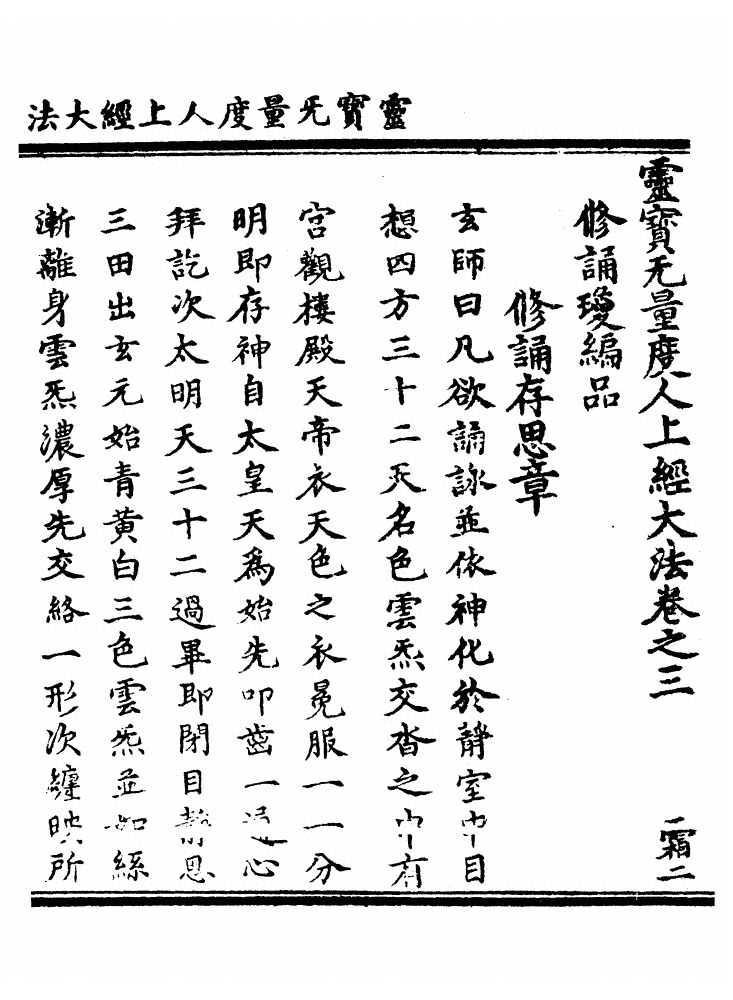 靈寶无量度人上經大法
靈寶无量度人上經大法卷之三 霜二
修誦瓊編品
修誦存思章
玄師曰凡欲誦詠並依神化於靜室中目
想四方三十二天名色雲炁交沓之中有
宮觀樓殿天帝衣天色之衣冕服一一分
明即存神自太皇天爲始先叩齒一通心
拜訖次太明天三十二過畢即閉目靜思
三田出玄元始青黃白三色雲炁並如絲
漸離身雲炁濃厚先交絡一形次纏映所